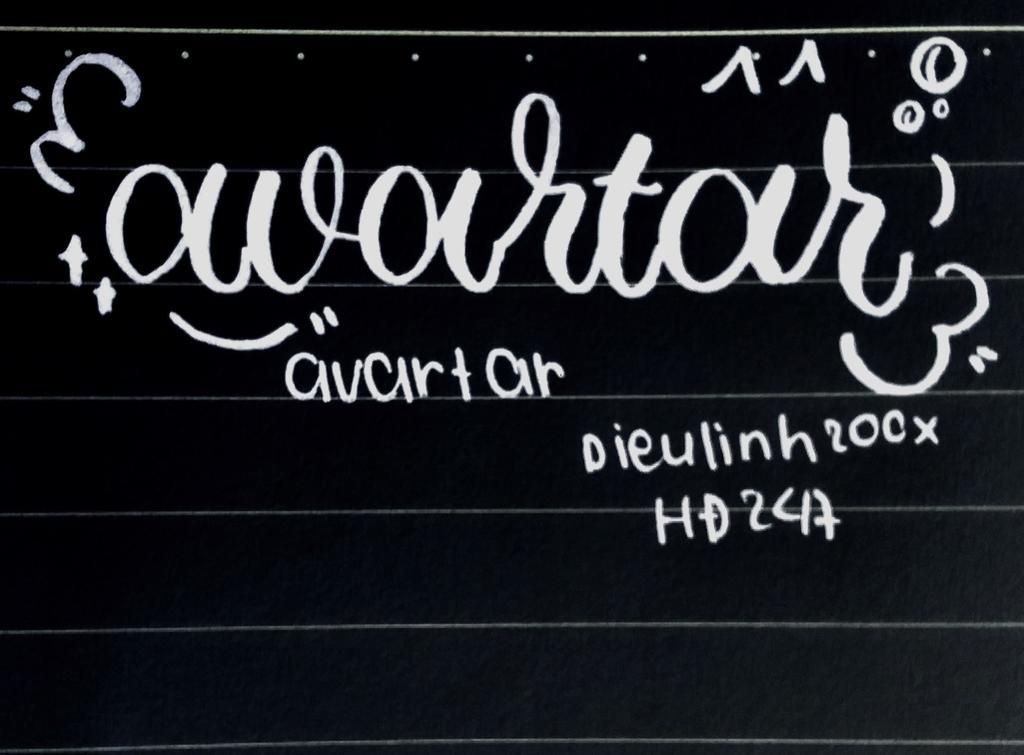 avartar
avartar
Dieulinh200x
HĐ247